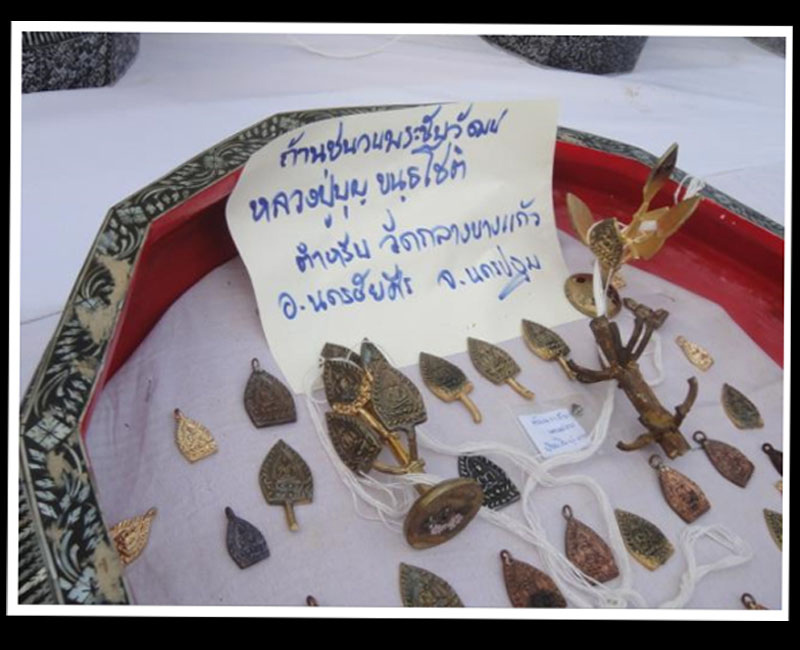 ก้านชนวนพระชัยวัฒน์
หลวงปู่บุญ ขนฺธโชติ
ตำหรับ วัดกลางบางแก้ว
อ.นครชัยศรี จ.นครปฐม